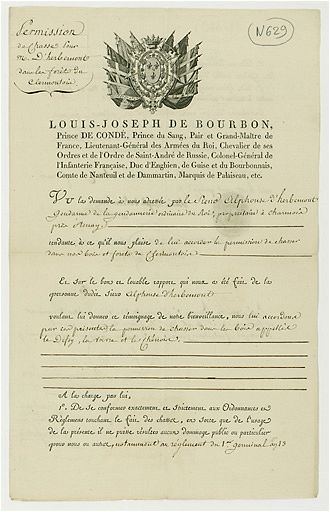 Permission
de Chasse pour
Mr. D'herbemont
dans les forêts du
Clermontois
N629
LOUIS-JOSEPH DE BOURBON,
Prince DE CONDÉ, Prince du Sang, Pair et Grand-Maître de
France, Lieutenant-Général des Armées du Roi, Chevalier de ses
Ordres et de l'Ordre de Saint-André de Russie, Colonel-Général de
l'Infanterie Française, Duc d'Enghien, de Guise et du Bourbonnais,
Comte de Nanteuil et de Dammartin, Marquis de Palaiseau, etc.
Vu la demande à nous adressée par le Sieur Alphonse d'herbemont
Gendarme de la gendarmerie ordinaire du Roi, propriétaire à Charmois
près Stenay
tendante à ce qu'il nous plaise de lui accorder la permission de chasser
dans nos bois et forêts de Clermontois
Et sur le bon et louable rapport qui nous a été fait de la
personne dudit Sieur Alphonse d'herbemont
voulant lui donner ce témoignage de notre bienveillance, nous lui accordons
par ces présentes la permission de chasser dans les bois appellés
le Defoy, la et le
A la charge par lui,
1º. De se conformer exactement et strictement aux Ordonnances et
Règlemens touchant le fait des chasses, en sorte que de l'usage
de la présente il ne puisse résulter aucun dommage public ou particulier
pour nous ou autres, notamment au règlement du 1er germinal an 13